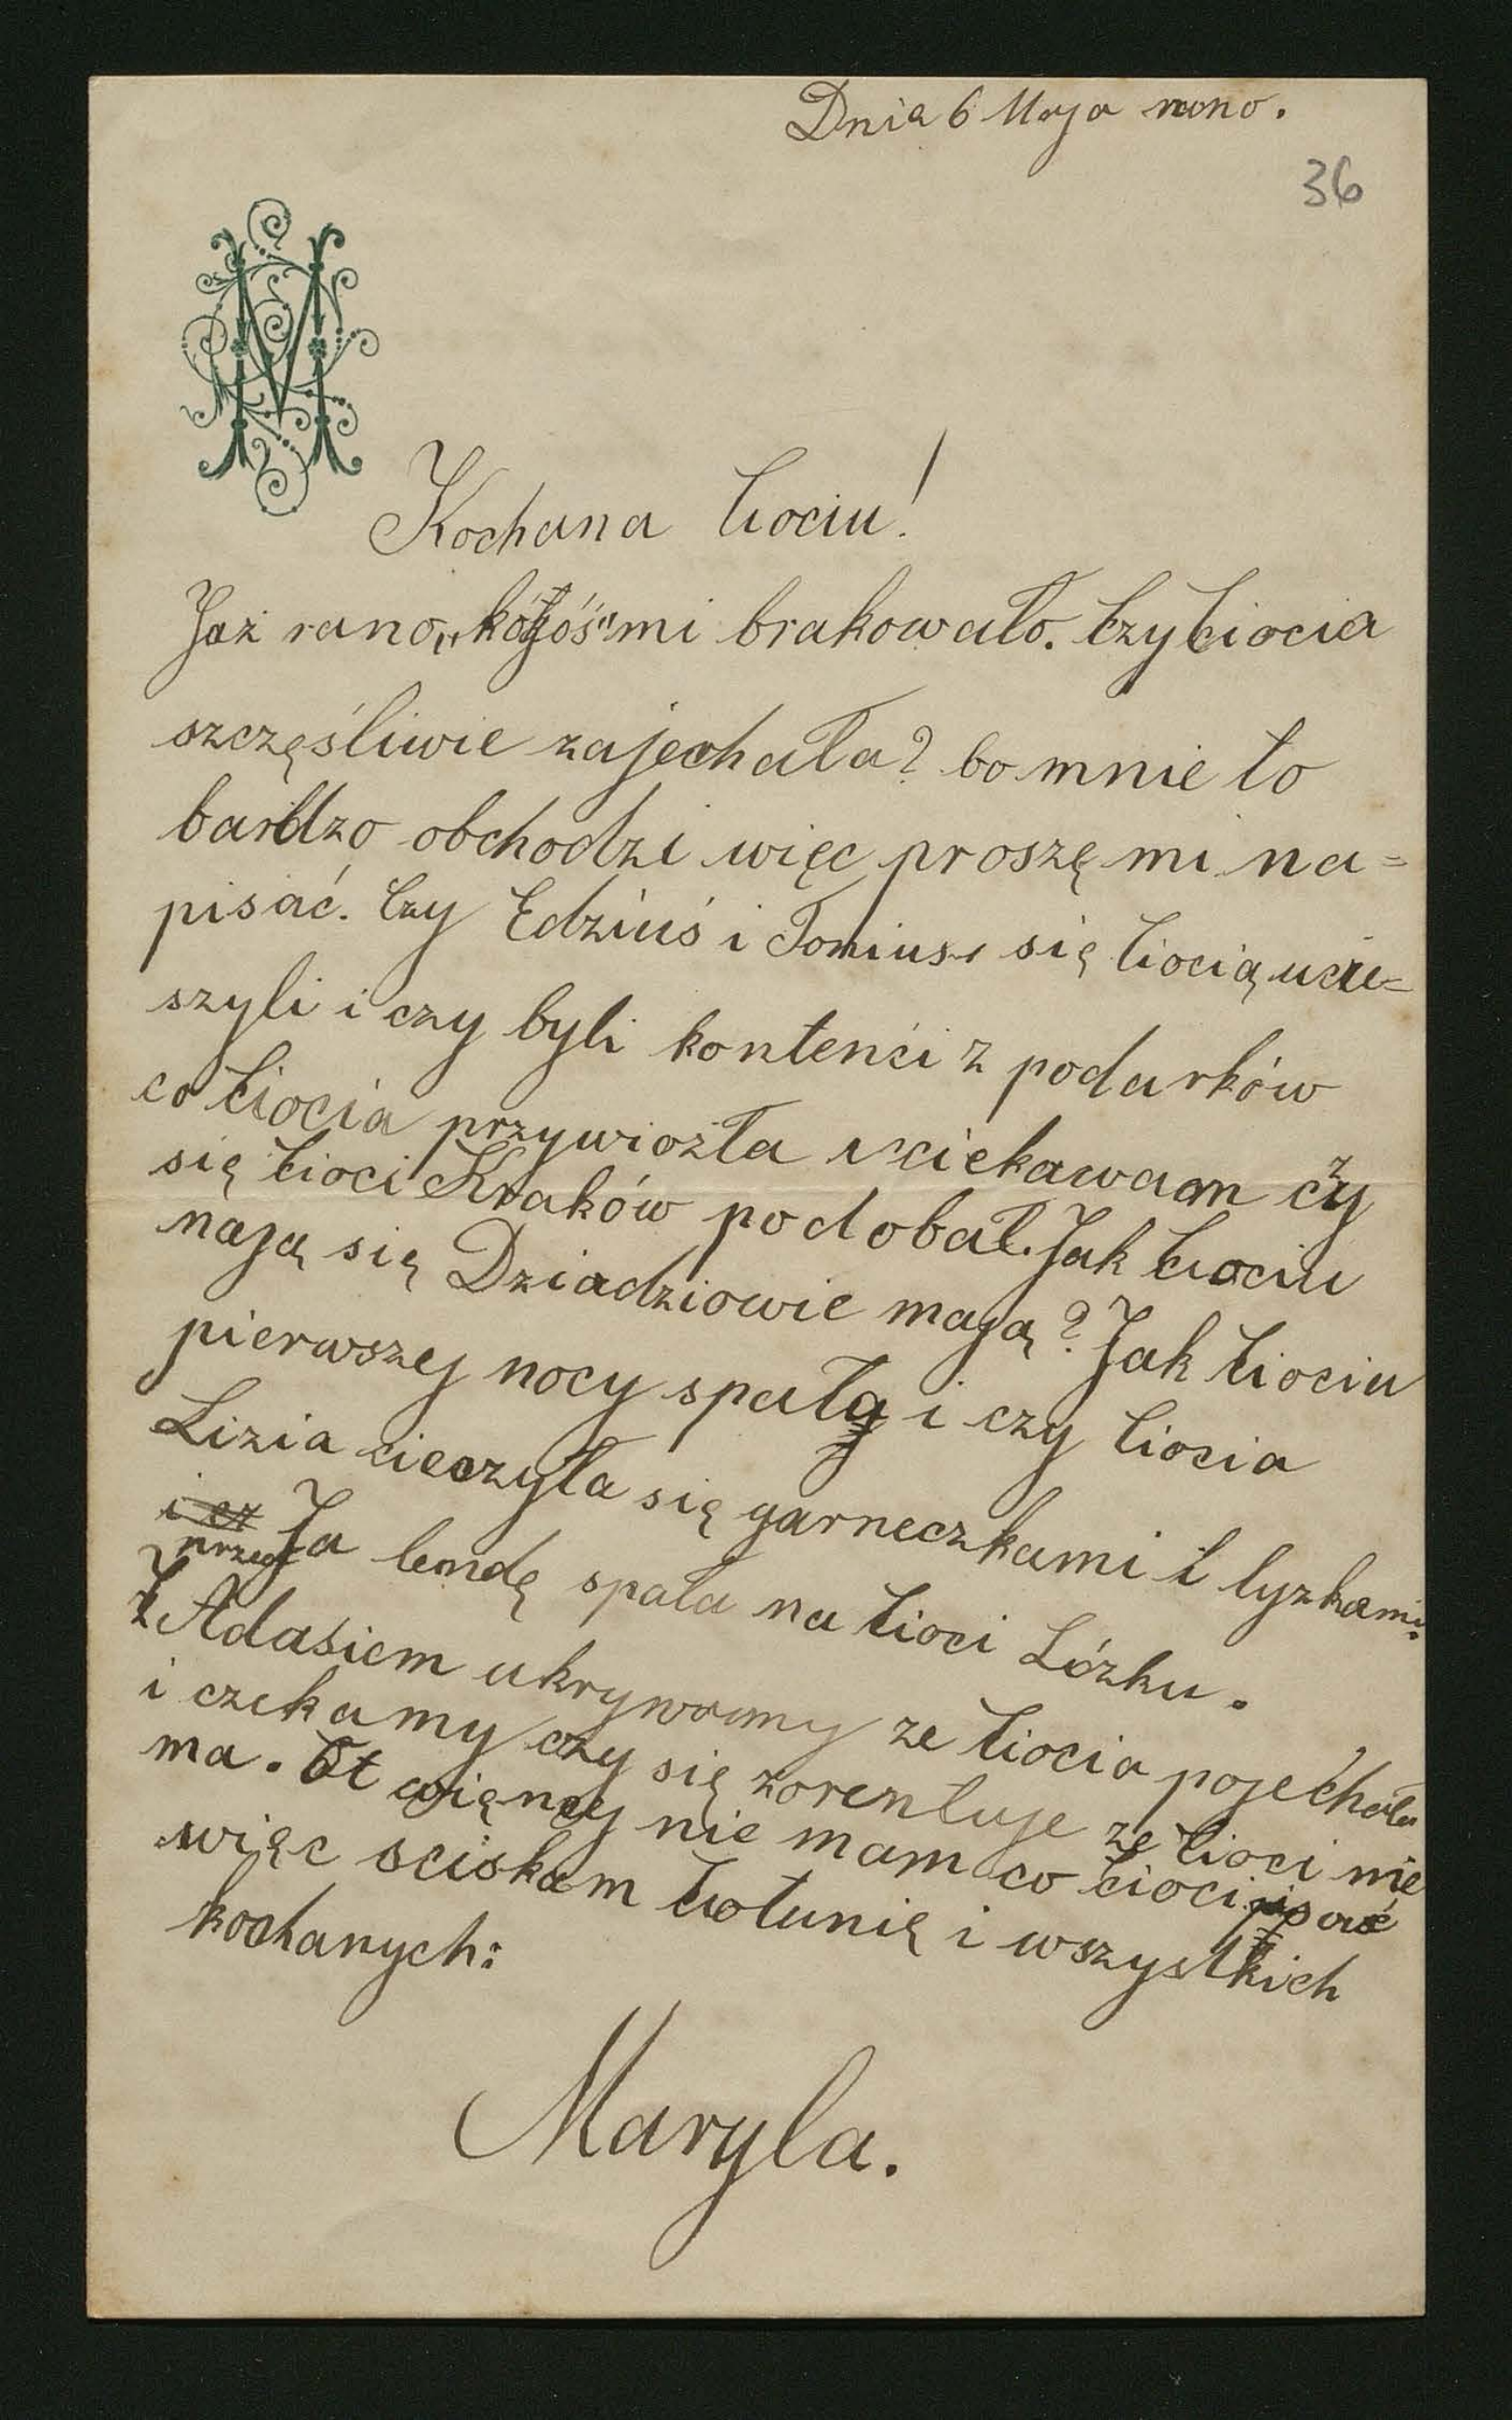 Dnia 6 Maja rano.
36
Kochana Ciociu!
Jaż rano „kógóś" mi brakowało. Czy Ciocia
szczęśliwie zajechała? bo mnie to
bardzo obchodzi więc proszę mi na=
pisać. Czy Edziuś i Toniuś się Ciocią ucie=
szyli i czy byli kontenci z podarków
co Ciocia przywiozła i ciekawam czy
się Cioci Kraków podobał. Jak Ciociu
mają się Dziadziowie mają? Jak Ciociu
pierwszej nocy spała i czy Ciocia
Lizia cieszyła się garneczkami i lyzkami.
i cz Ja bendę spała na Cioci Lózku.
Z Adasiem ukrywamy ze Ciocia pojechała
i czekamy czy się zorentuje ze Cioci nie
ma. Ot więncy nie mam co Cioci pisać
więc sciskam Ciotunię i wszystkich
kochanych:
Maryla.